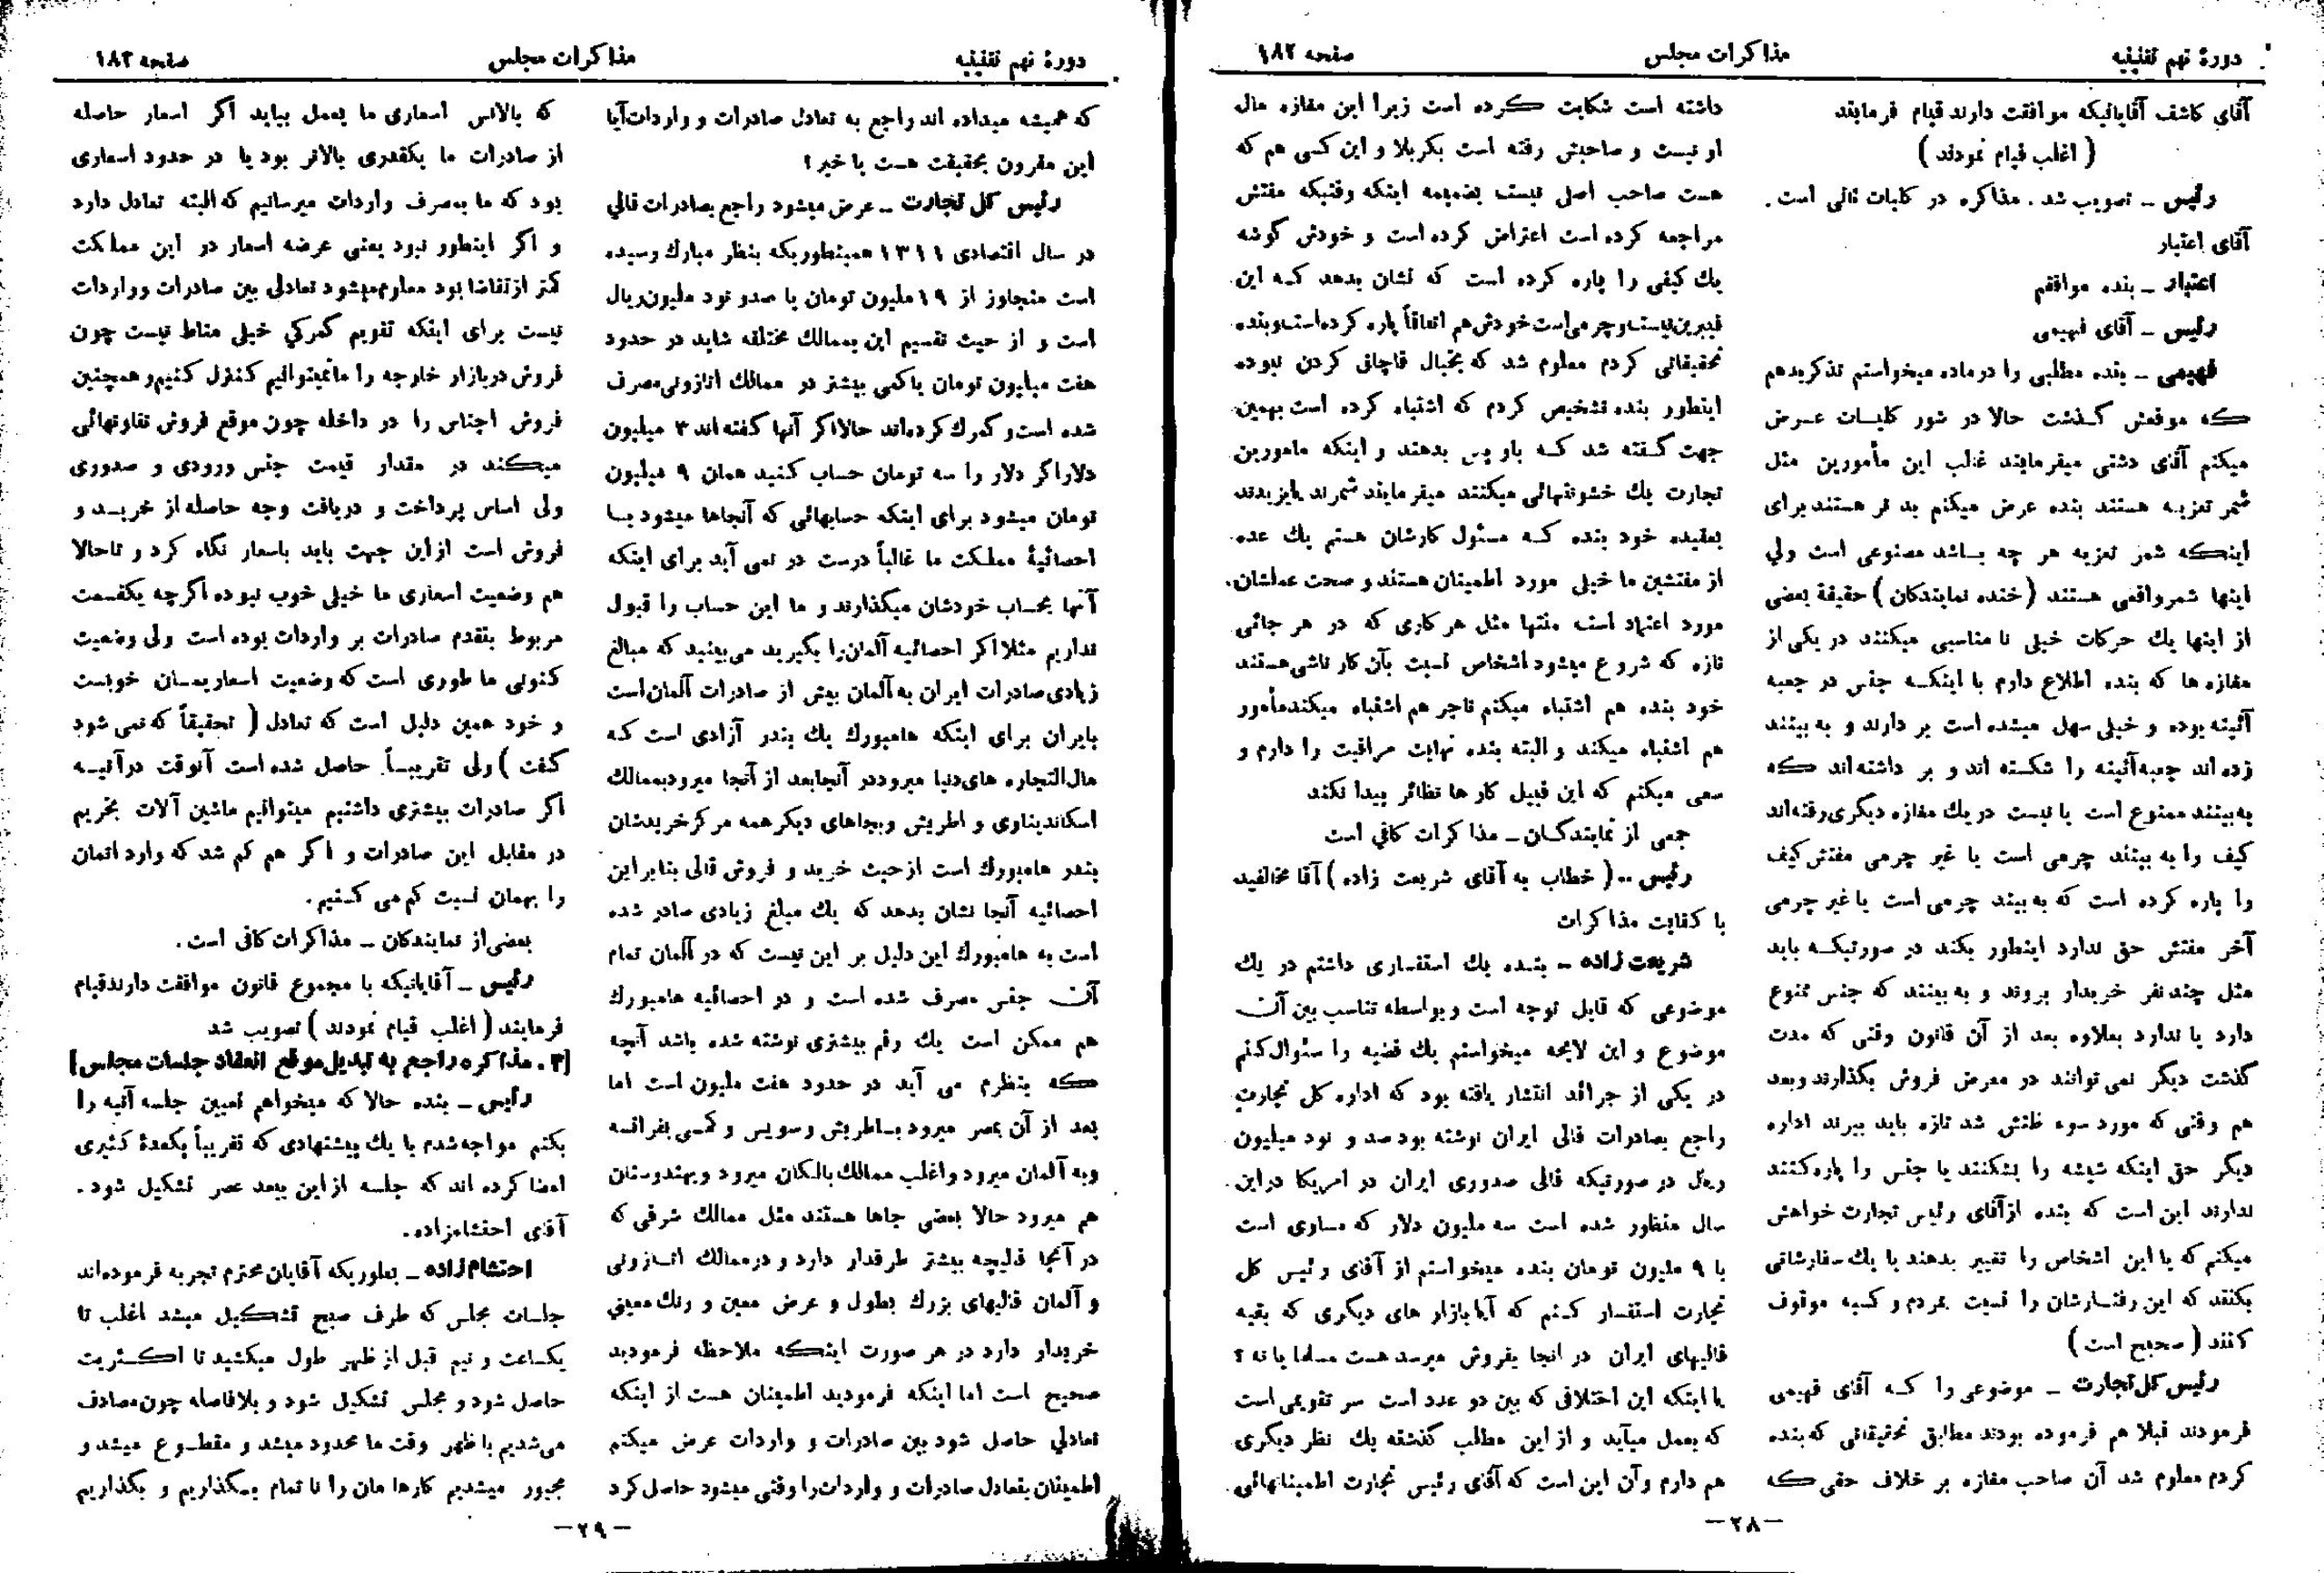 دورهٔ نهم تقنینیه مذاکرات مجلس صفحه ۱۸۲
آقای کاشف آقایانیکه موافقت دارند قیام فرمایند
( اغلب قیام نمودند )
رئیس ـ تصویب شد . مذاکره در کلیات ثانی است .
آقای اعتبار
اعتبار ـ بنده موافقم
رئیس ـ آقای فهیمی
فهیمی ـ بنده مطلبی را درماده میخواستم تذکر بدهم
که موقعش گذشت حالا در شور کلیات عرض
میکنم آقای دشتی میفرمایند غالب این مأمورین مثل
شمر تعزیه هستند بنده عرض میکنم بد تر هستند برای
اینکه شمر تعزیه هر چه باشد مصنوعی است ولی
اینها شمر واقعی هستند ( خنده نمایندگان ) حقیقة بعضی
از اینها یك حرکات خیلی نا مناسبی میکنند در یکی از
مغازه ها که بنده اطلاع دارم با اینکه جنس در جعبه
آئینه بوده و خیلی سهل میشده است بر دارند و به بینند
زده اند جعبه آئینه را شکسته اند و بر داشته اند که
به بینند ممنوع است یا نیست در یك مغازه دیگری رفته اند
کیف را به بینند چرمی است یا غیر چرمی مفتش کیف
را پاره کرده است که به بیند چرمی است یا غیر چرمی
آخر مفتش حق ندارد اینطور بکند در صورتیکه باید
مثل چند نفر خریدار بروند و به بینند که جنس ممنوع
دارد یا ندارد بعلاوه بعد از آن قانون وقتی که مدت
گذشت دیگر نمی توانند در معرض فروش بگذارند و بعد
هم وقتی که مورد سوء ظنش شد تازه باید ببرند اداره
دیگر حق اینکه شیشه را بشکنند یا جنس را پاره کنند
ندارند این است که بنده از آقای رئیس تجارت خواهش
میکنم که یا این اشخاص را تغییر بدهند یا یك سفارشاتی
بکنند که این رفتارشان را نسبت بمردم و کسبه موقوف
کنند ( صحیح است )
رئیس کل تجارت ـ موضوعی را که آقای فهیمی
فرمودند قبلا هم فرموده بودند مطابق تحقیقاتی که بنده
کردم معلوم شد آن صاحب مغازه بر خلاف حقی که
داشته است شکایت کرده است زیرا این مغازه مال
او نیست و صاحبش رفته است بکربلا و این کسی هم که
هست صاحب اصلی نیست بضمیمه اینکه وقتیکه مفتش
مراجعه کرده است اعتراض کرده است و خودش گوشه
یك کیفی را پاره کرده است که نشان بدهد که این
فیبرین نیست و چرمی است خودش هم اتفاقاً پاره کرده است و بنده
تحقیقاتی کردم معلوم شد که بخیال قاچاق کردن نبوده
اینطور بنده تشخیص کردم که اشتباه کرده است بهمین
جهت گفته شد که باو پس بدهند و اینکه مامورین
تجارت یك خشونتهائی میکنند میفرمایند شمرند یا یزیدند
بعقیده خود بنده که مسئول کارشان هستم یك عده
از مفتشین ما خیلی مورد اطمینان هستند و صحت عملشان
مورد اعتماد است منتها مثل هر کاری که در هر جائی
تازه که شروع میشود اشخاص نسبت بآن کار ناشی هستند
خود بنده هم اشتباه میکنم تاجر هم اشتباه میکند مأمور
هم اشتباه میکند و البته بنده نهایت مراقبت را دارم و
سعی میکنم که این قبیل کار ها نظائر پیدا نکند
جمعی از نمایندگان ـ مذاکرات کافی است
رئیس ـ ( خطاب به آقای شریعت زاده ) آقا مخالفید
با کفایت مذاکرات
شریعت زاده ـ بنده یك استفساری داشتم در یك
موضوعی که قابل توجه است و بواسطه تناسب بین آن
موضوع و این لایحه میخواستم یك قضیه را سئوال کنم
در یکی از جرائد انتشار یافته بود که اداره کل تجارت
راجع بصادرات قالی ایران نوشته بود صد و نود میلیون
ریال در صورتیکه قالی صدوری ایران در امریکا در این
سال منظور شده است سه ملیون دلار که مساوی است
با ۹ ملیون تومان بنده میخواستم از آقای رئیس کل
تجارت استفسار کنم که آیا بازار های دیگری که بقیه
قالیهای ایران در انجا بفروش میرسد هست مسلما یا نه ؟
یا اینکه این اختلافی که بین دو عدد است سر تقویمی است
که بعمل میآید و از این مطلب گذشته یك نظر دیگری
هم دارم و آن این است که آقای رئیس تجارت اطمینانهائی
ـ ۲۸ ـ
دورهٔ نهم تقنینیه مذاکرات مجلس صفحه ۱۸۳
که همیشه میداده اند راجع به تعادل صادرات و واردات آیا
این مقرون بحقیقت هست یا خیر ؟
رئیس کل تجارت ـ عرض میشود راجع بصادرات قالی
در سال اقتصادی ۱۳۱۱ همینطوریکه بنظر مبارك رسیده
است متجاوز از ۱۹ ملیون تومان یا صدو نود ملیون ریال
است و از حیث تقسیم این بممالك مختلفه شاید در حدود
هفت میلیون تومان یا کمی بیشتر در ممالك اتازونی مصرف
شده است و گمرك کرده اند حالا اگر آنها گفته اند ۳ میلیون
دلار اگر دلار را سه تومان حساب کنید همان ۹ میلیون
تومان میشود برای اینکه حسابهائی که آنجاها میشود با
احصائیهٔ مملکت ما غالباً درست در نمی آید برای اینکه
آنها بحساب خودشان میگذارند و ما این حساب را قبول
نداریم مثلا اگر احصائیه آلمان را بگیرید می بینید که مبالغ
زیادی صادرات ایران به آلمان بیش از صادرات آلمان است
بایران برای اینکه هامبورك یك بندر آزادی است که
مال التجاره های دنیا میرود در آنجا بعد از آنجا میرود بممالك
اسکاندیناوی و اطریش و بجاهای دیگر همه مرکز خریدشان
بندر هامبورك است از حیث خرید و فروش قالی بنابر این
احصائیه آنجا نشان بدهد که یك مبلغ زیادی صادر شده
است به هامبورك این دلیل بر این نیست که در آلمان تمام
آن جنس مصرف شده است و در احصائیه هامبورك
هم ممکن است یك رقم بیشتری نوشته شده باشد آنچه
که بنظرم می آید در حدود هفت ملیون است اما
بعد از آن بمصر میرود باطریش و سویس و کمی بفرانسه
و به آلمان میرود و اغلب ممالك بالکان میرود و بهندوستان
هم میرود حالا بعضی جاها هستند مثل ممالك شرقی که
در آنجا قالیچه بیشتر طرفدار دارد و در ممالك اتازونی
و آلمان قالیهای بزرك بطول و عرض معین و رنك معینی
خریدار دارد در هر صورت اینکه ملاحظه فرمودید
صحیح است اما اینکه فرمودید اطمینان هست از اینکه
تعادلی حاصل شود بین صادرات و واردات عرض میکنم
اطمینان بتعادل صادرات و واردات را وقتی میشود حاصل کرد
که بالانس اسعاری ما بعمل بیاید اگر اسعار حاصله
از صادرات ما یکقدری بالاتر بود یا در حدود اسعاری
بود که ما بمصرف واردات میرسانیم که البته تعادل دارد
و اگر اینطور نبود یعنی عرضه اسعار در این مملکت
کمتر از تقاضا بود معلوم میشود تعادلی بین صادرات و واردات
نیست برای اینکه تقویم گمرکی خیلی مناط نیست چون
فروش در بازار خارجه را ما نمیتوانیم کنترل کنیم و همچنین
فروش اجناس را در داخله چون موقع فروش تفاوتهائی
میکند در مقدار قیمت جنس ورودی و صدوری
ولی اساس پرداخت و دریافت وجه حاصله از خرید و
فروش است از این جهت باید باسعار نگاه کرد و تا حالا
هم وضعیت اسعاری ما خیلی خوب نبوده اگر چه یکقسمت
مربوط بتقدم صادرات بر واردات بوده است ولی وضعیت
کنونی ما طوری است که وضعیت اسعاریمان خوبست
و خود همین دلیل است که تعادل ( تحقیقاً که نمی شود
گفت ) ولی تقریباً حاصل شده است آنوقت در آتیه
اگر صادرات بیشتری داشتیم میتوانیم ماشین آلات بخریم
در مقابل این صادرات و اگر هم کم شد که وارداتمان
را بهمان نسبت کم می کنیم .
بعضی از نمایندگان ـ مذاکرات کافی است .
رئیس ـ آقایانیکه با مجموع قانون موافقت دارند قیام
فرمایند ( اغلب قیام نمودند ) تصویب شد
[ ۳ ـ مذاکره راجع به تبدیل موقع انعقاد جلسات مجلس ]
رئیس ـ بنده حالا که میخواهم تعیین جلسه آتیه را
بکنم مواجه شدم با یك پیشنهادی که تقریباً یکعدهٔ کثیری
امضا کرده اند که جلسه از این ببعد عصر تشکیل شود .
آقای احتشامزاده .
احتشام زاده ـ بطوریکه آقایان محترم تجربه فرموده اند
جلسات مجلس که طرف صبح تشکیل میشد اغلب تا
یکساعت و نیم قبل از ظهر طول میکشید تا اکثریت
حاصل شود و مجلس تشکیل شود و بلافاصله چون مصادف
می شدیم با ظهر وقت ما محدود میشد و مقطوع میشد و
مجبور میشدیم کارها مان را نا تمام بگذاریم و بگذاریم
ـ ۲۹ ـ